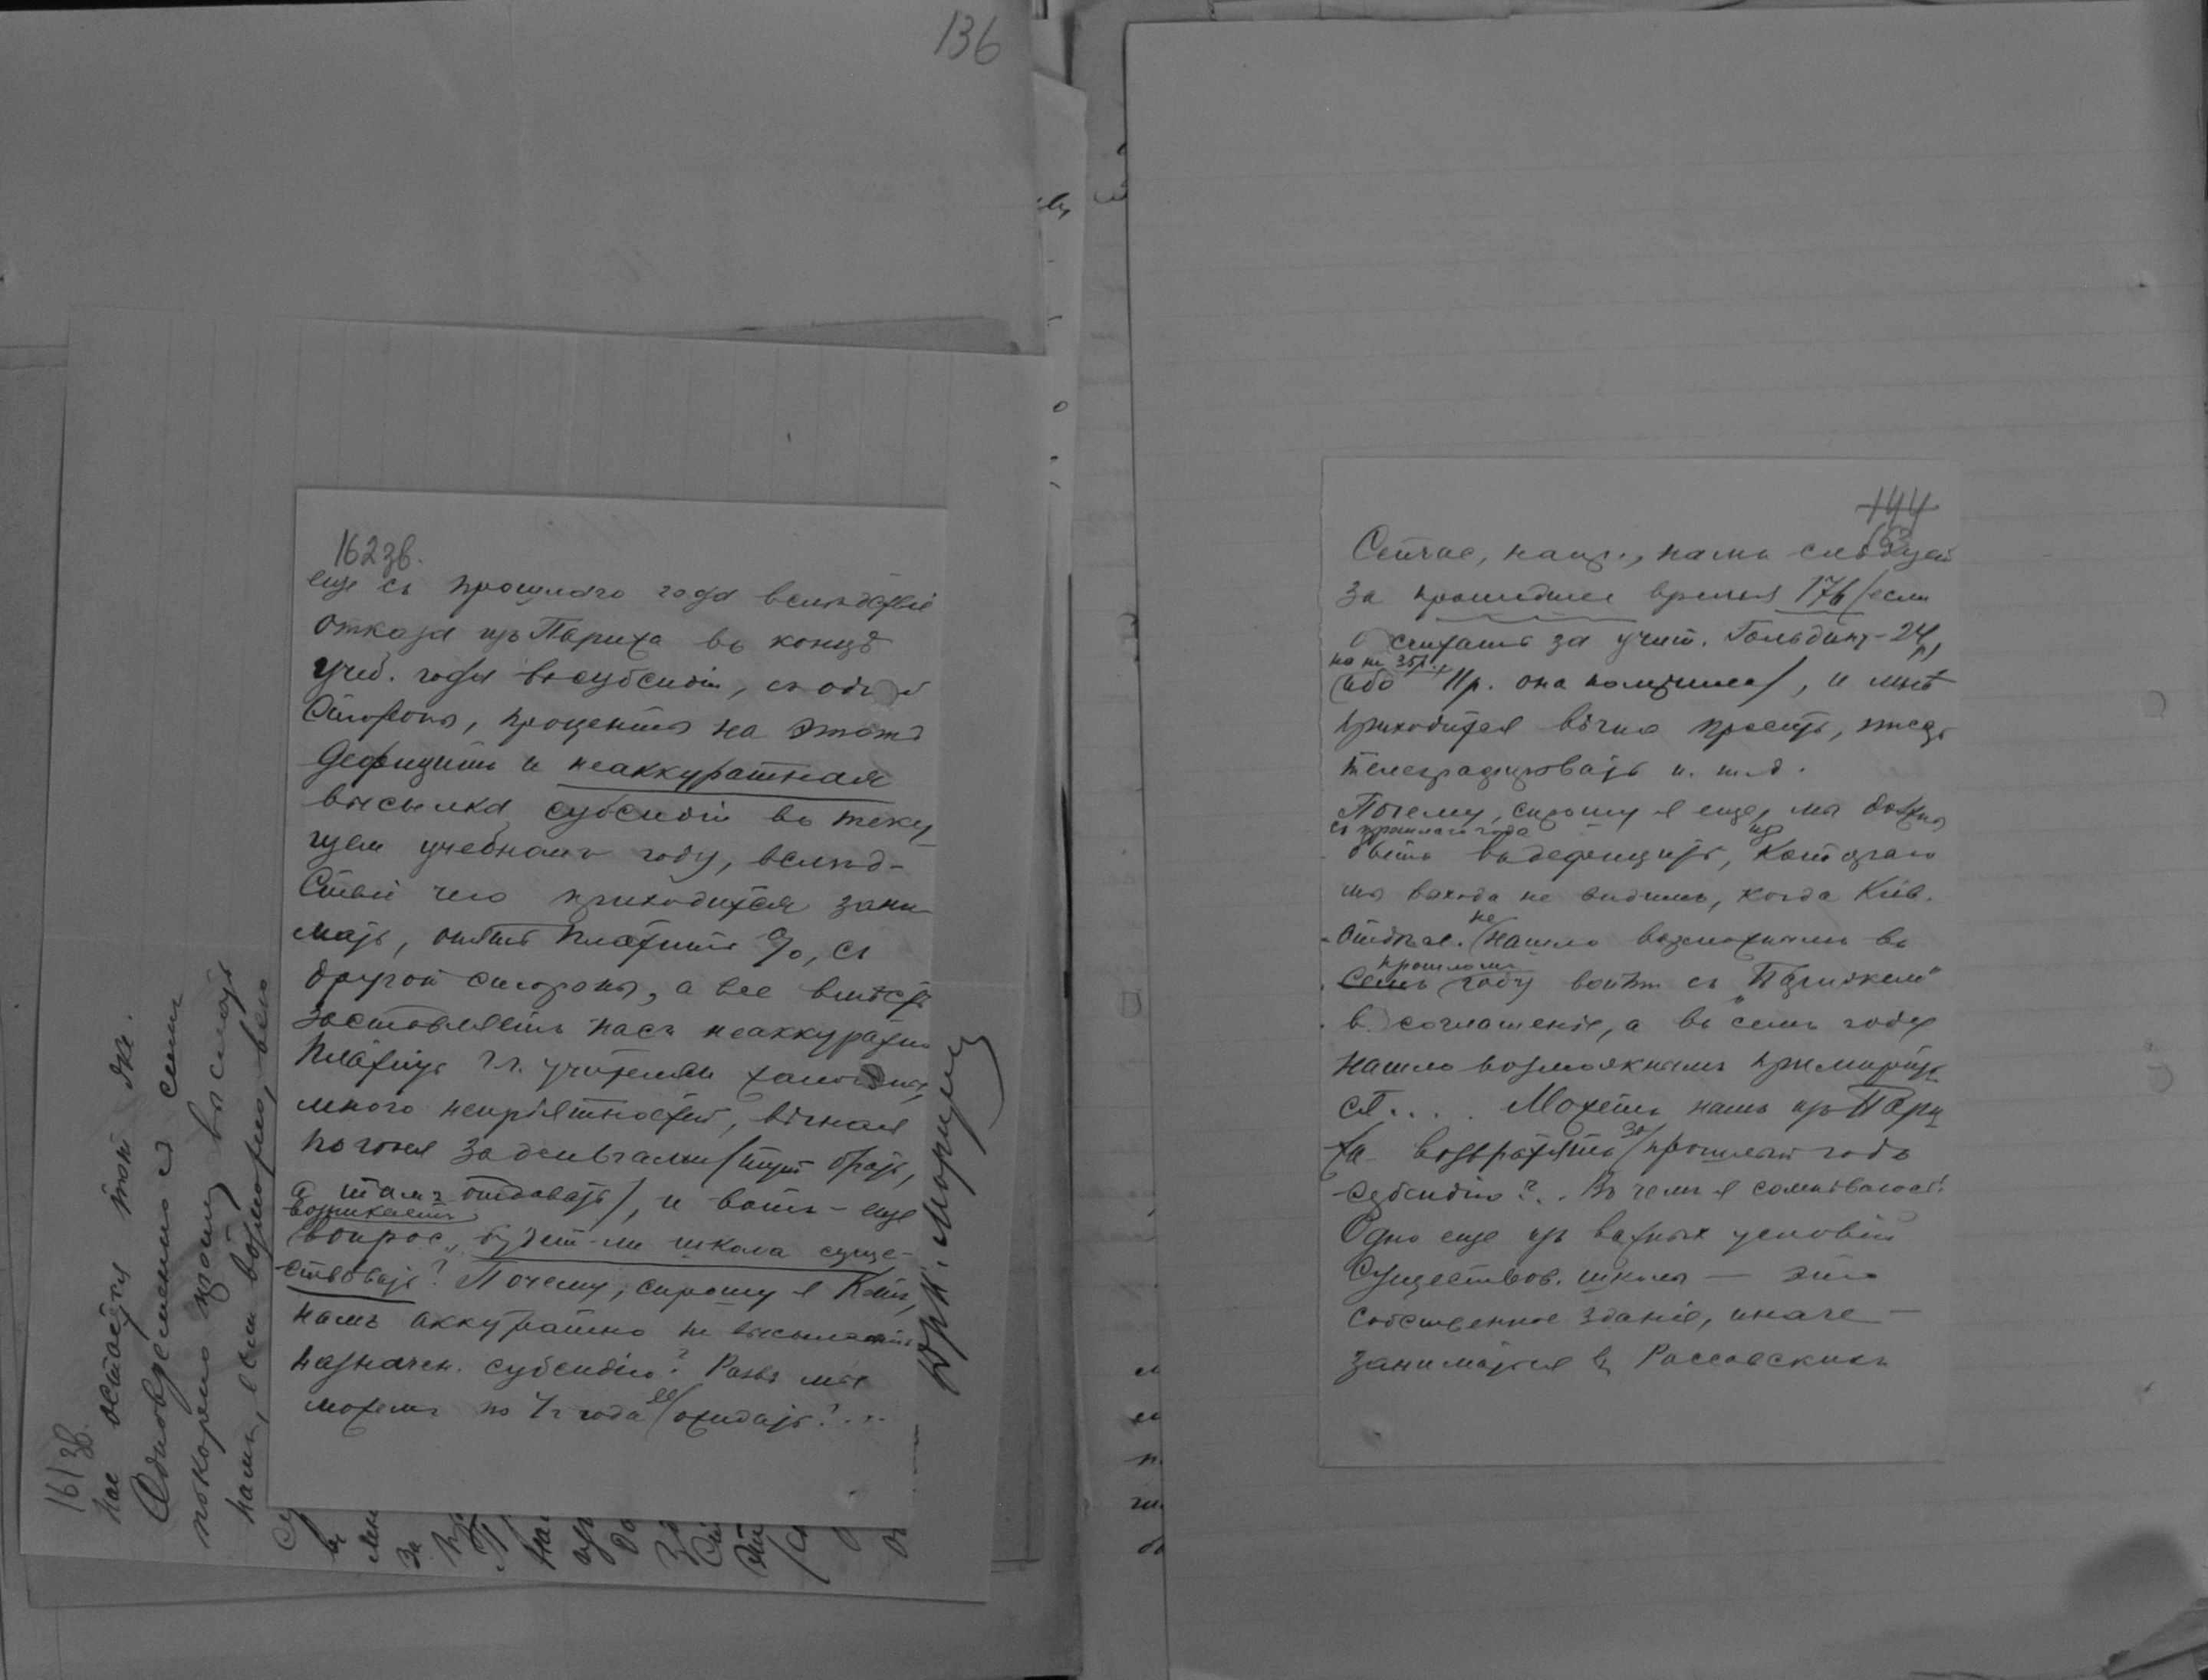 136
162 зв.
еще съ прошлаго года вслѣдствіе
отказа изъ Парижа въ концѣ
учеб. года въ субсидіи, съ одной
стороны, проценты на этотъ
дефицитъ и неаккуратная
высылка субсидіи въ теку-
щем учебномъ году, вслѣд-
ствіи чего приходится зани-
мать, опять платить %, съ
другой стороны, а все вмѣстѣ
заставляетъ насъ неаккуратно
платить г.г. учителям жалованье,
много непріятностей, вѣчная
погоня за деньгами (тут брать,
а тамъ отдавать), и вотъ - еще
возникаетъ
вопрос, будет-ли школа суще-
ствовать? Почему, спрошу я Ком.,
намъ аккуратно не высылаютъ
назначен. субсидію? Развѣ мы
можемъ по ½ года ее ожидать?...
161 зв.
нас остаётся тот же.
Одновременно с симъ
покорно прошу выслать
намъ, если возможно,
144
Сейчас, напр., намъ слѣдуетъ
за прошедшее время 176 (если
считать за учит. Гольдинг - 24 р,
но не 35 р.
ибо 11 р. она получила), и мнѣ
приходится вѣчно просить, писать
телеграфировать и. т. д.
Почему, спрошу я еще, мы должны
съ прошлаго года из
быть въ дефицитѣ, котораго
мы выхода не видимъ, когда Кіев.
Отдѣл. не нашло возможнымъ въ
прошломъ
семъ году войти съ "Парижем"
в соглашеніе, а въ семъ году
нашло возможнымъ примирить-
ся....Можетъ намъ изъ Пари-
жа возвратятъ за прошлый годъ
субсидію?.. Въ чемъ я сомнѣваюсь!
Одно еще изъ важных условій
существов. школы — это
собственное зданіе, иначе —
заниматься въ Рассовскихъ